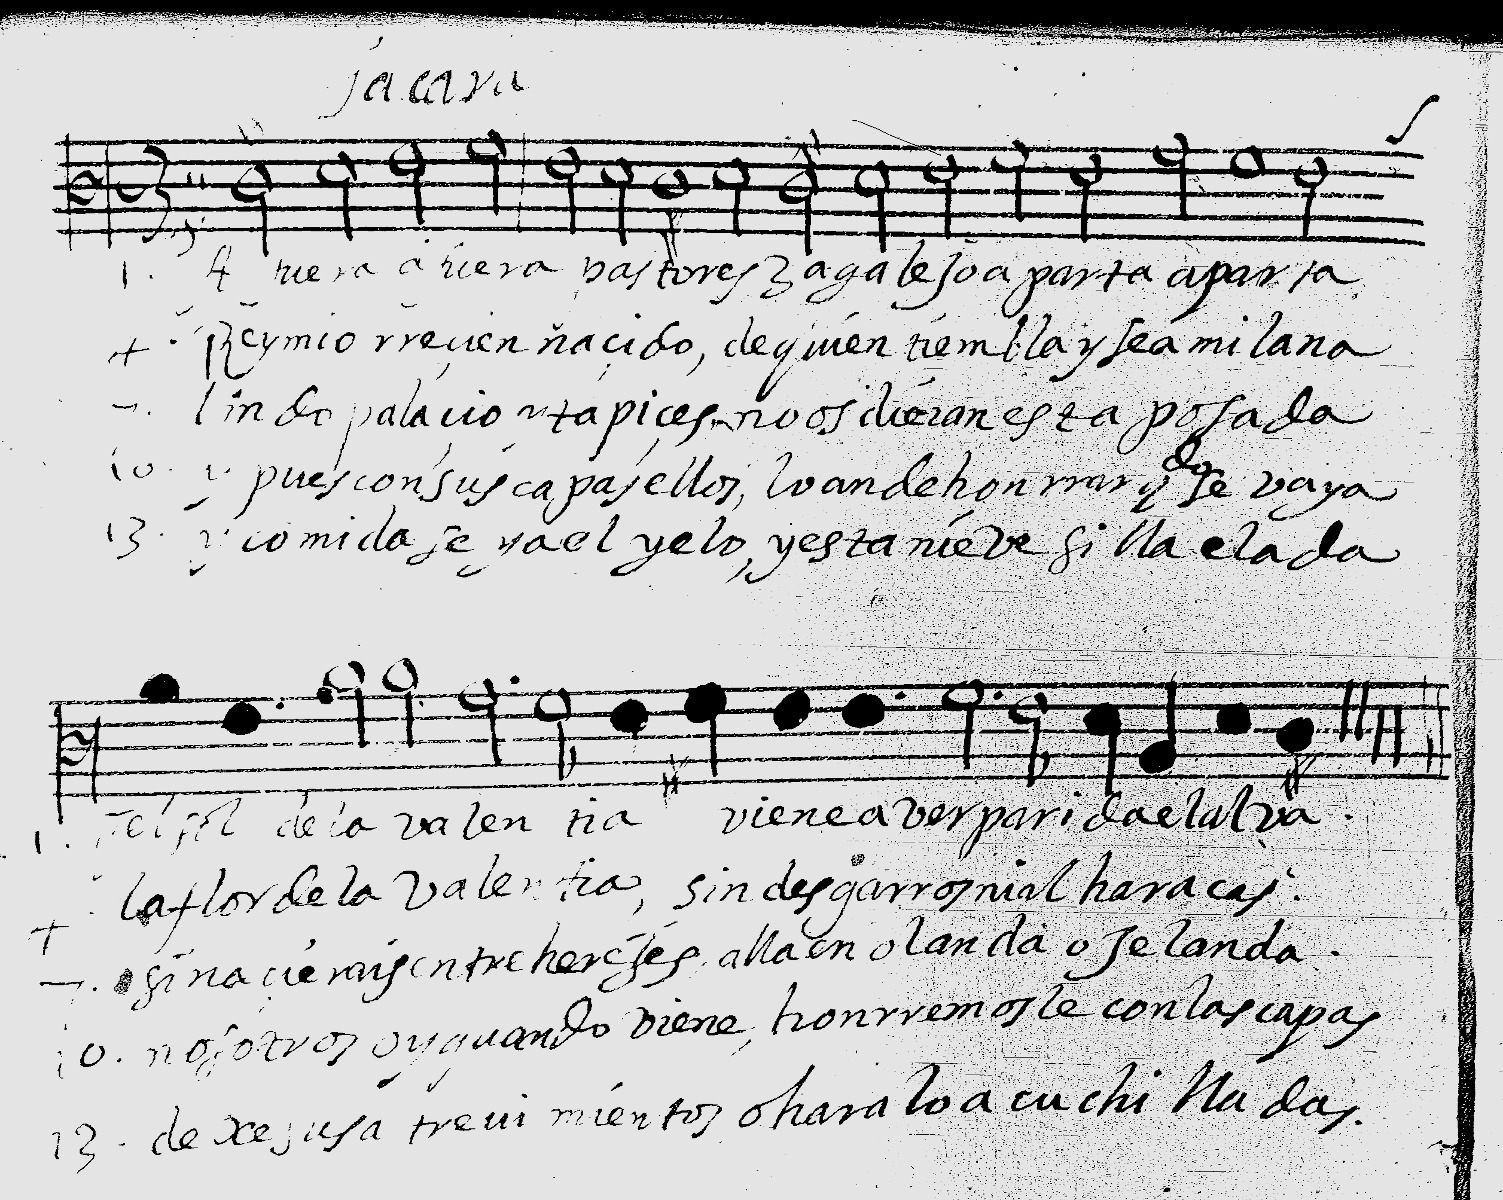 jacara
1. A fuera afuera pastores zagalejo aparta aparta
4. Reymio rrecien nacido, de quien tiembla y sea milana
7. lindo palacio y tapices no os dieran esta posada
10. y pues con sus capas ellos, lo an de honrrar do se vaya
13. y comida se ya el yelo, y esta nieve si lla elada
1. el sol de la valentia viene a ver parida el alva.
4. la flor de la valentia, sin desgarros ni al haracas.
7. si nacierais entre herejes alla en olanda o Jelanda.
10. nosotros oy quando viene, honrremosle con las capas
13. dexe sus atrevimientos o hara lo a cuchilladas.